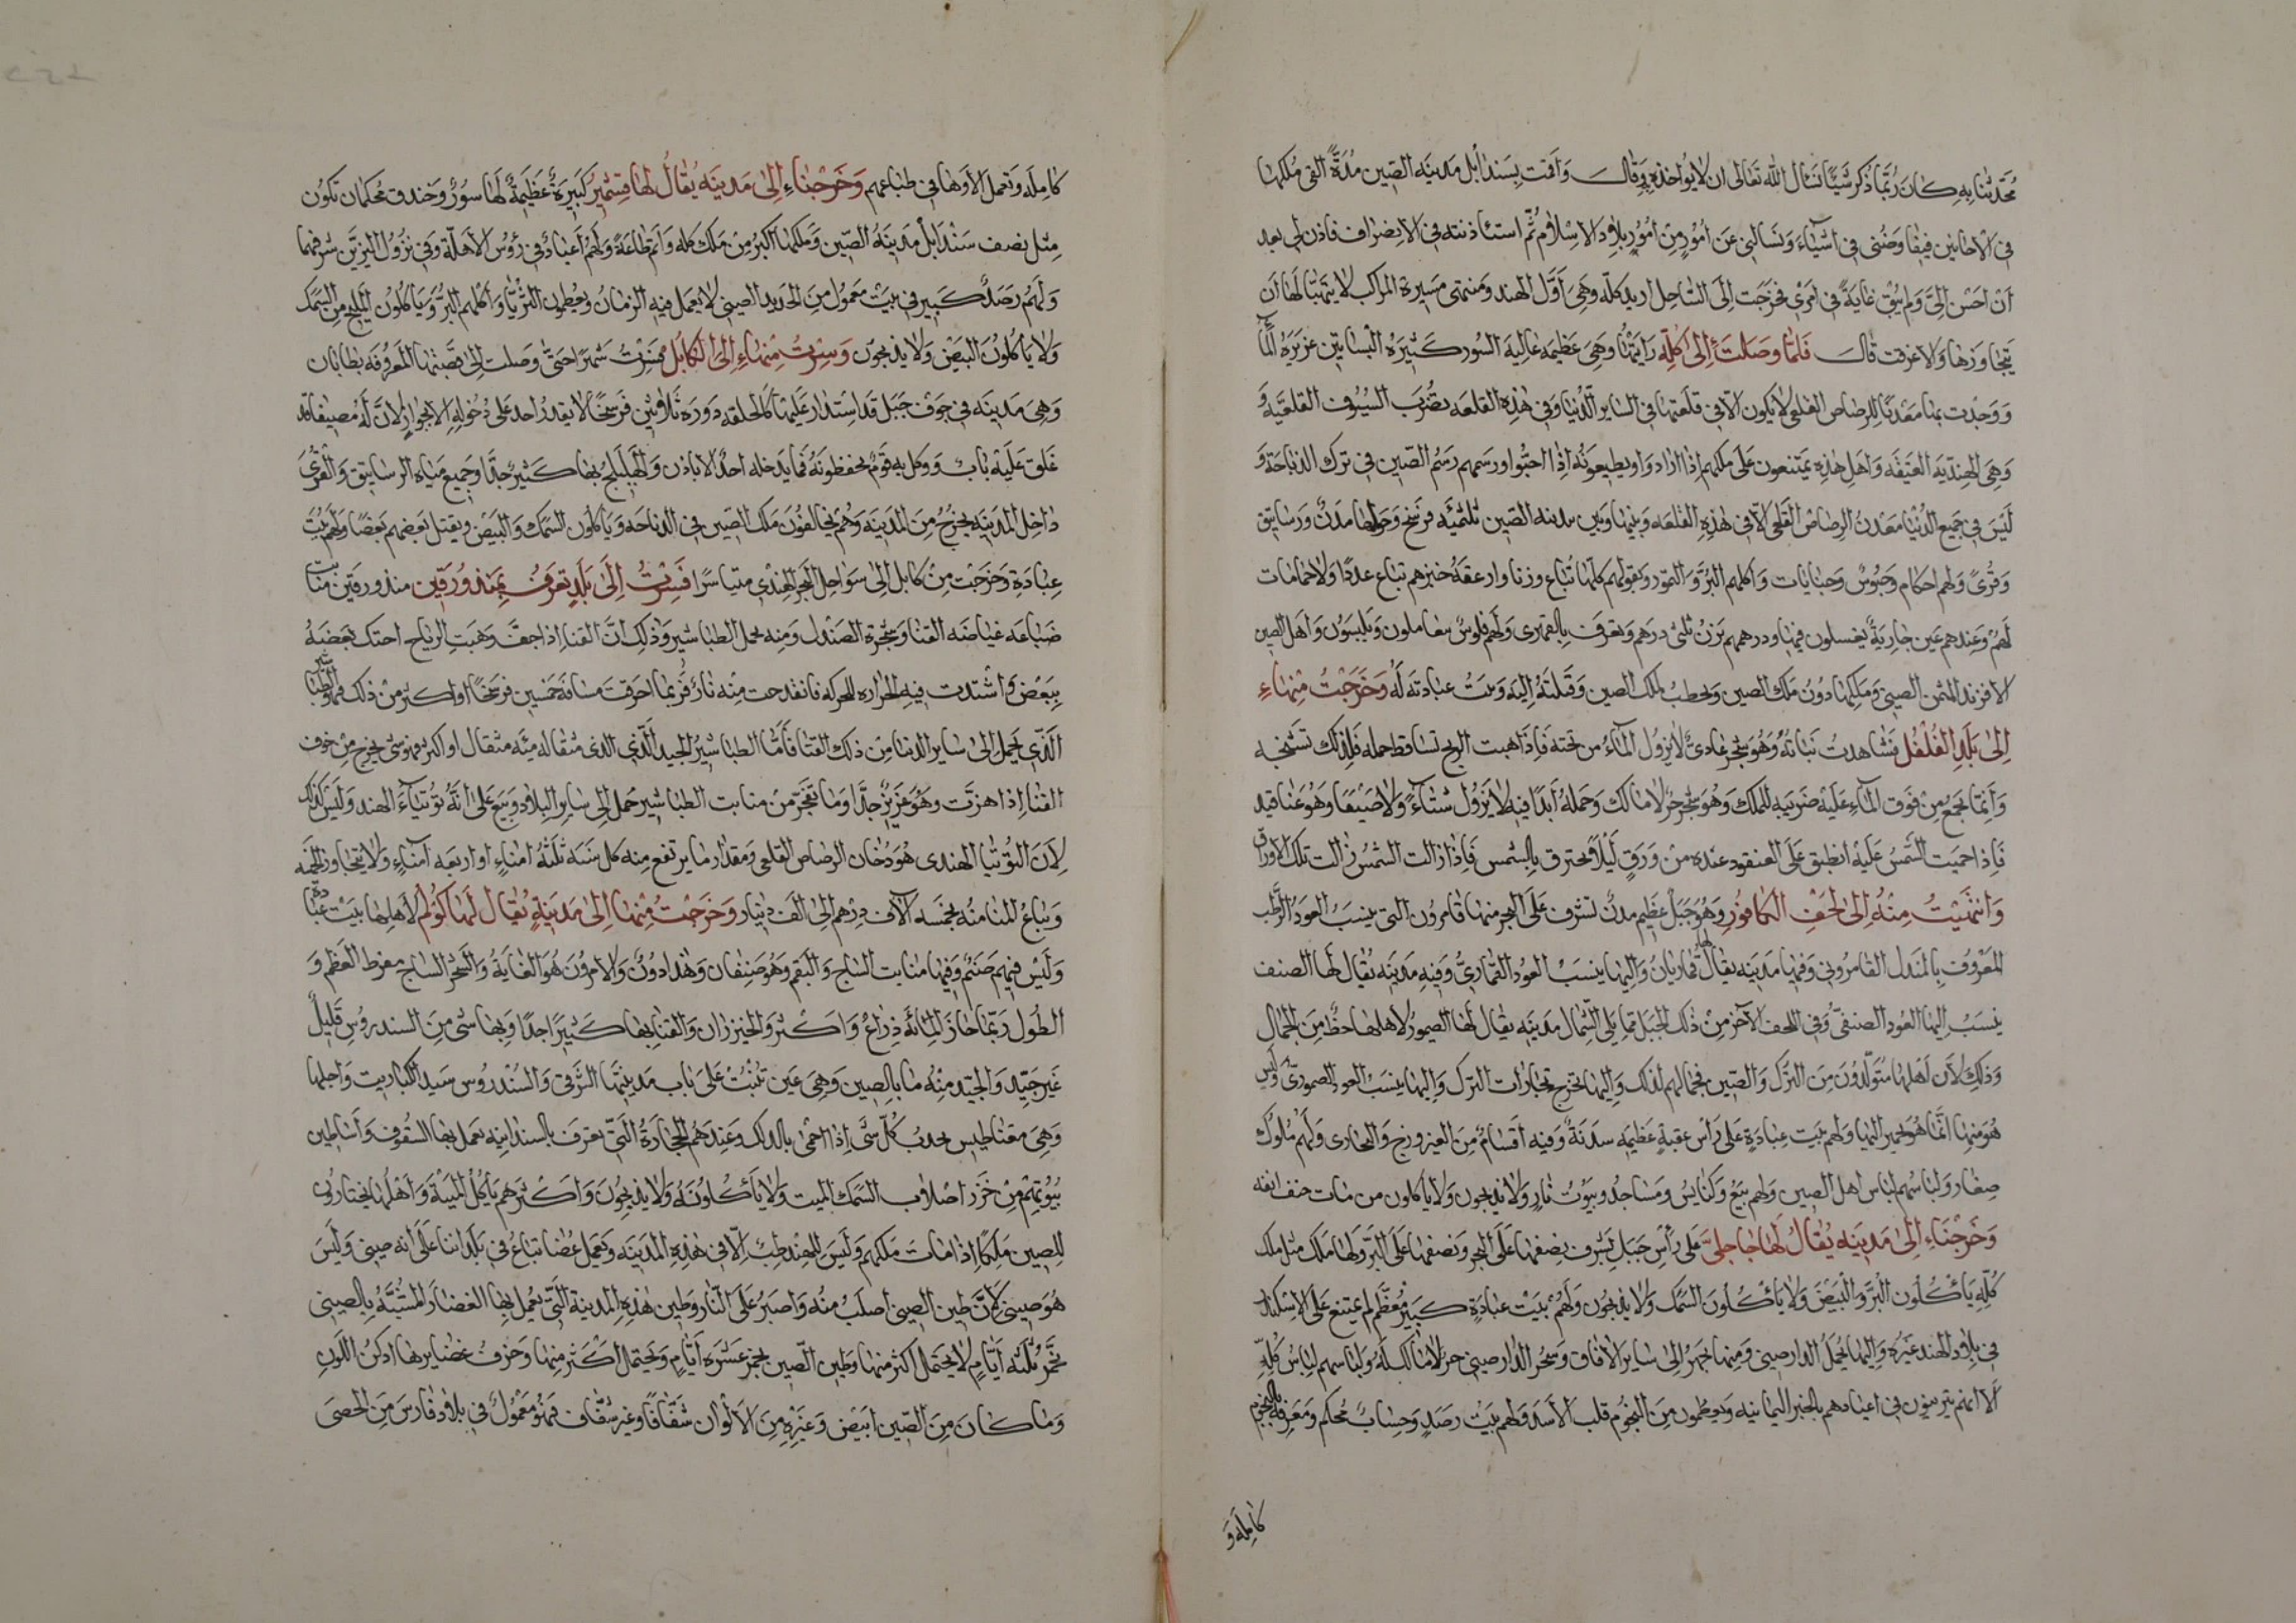 محدثنا به كان ربما ذكر شيئا نسأل الله تعالى ان لا يؤاخذه به وقال واقمت بسندابل مدينة الصين مدة القى ملكها
في الاحايين فيفاوضني في اشياء ويسالني عن امور من امور بلاد الاسلام ثم استئاذنته في الانصراف فاذن لي بعد
ان احسن الي ولم يبق غاية في امري فخرجت الى الساحل اريد كله وهي اول الهند ومنتهى مسيرة المراكب لا يتهيا لها ان
يتجاوزها والا غرقت قال فلما وصلت الى كله رايتها وهي عظيمة عالية السور كثيرة البساتين غزيرة الماء
ووجدت بها معدنا للرصاص القلعي لا يكون الا في قلعتها في الساير الدنيا وفي هذه القلعه تضرب السيوف القلعية و
وهي الهندية العتيقه واهل هذه يمتنعون على ملكهم اذا ارادوا ويطيعونه اذا احبوا ورسمهم رسم الصين في ترك الذباحة و
ليس في جميع الدنيا معدن الرصاص القلعي الا في هذه القلعه وبينها وبين مدينه الصين ثلثمئه فرسخ وحولها مدن ورساتيق
وقرى ولهم احكام وحبوس وجنايات واكلهم البر والتمور وبقولهم كلها تباع وزنا وارغفة خبزهم تباع عددا ولا حمامات
لهم وعندهم عين جارية يغتسلون فيها ودرهمهم يزن ثلثي درهم ويعرف بالقهري ولهم فلوس يتعاملون ويلبسون واهل الصين
الافرند المثمن الصيني وملكها دون ملك الصين ويخطب لملك الصين وقبلته اليه وبيت عبادته له وخرجت منها
الى بلد الفلفل فشاهدت نباته وهو شجر عادي لا يزول الماء من تحته فاذا هبت الريح تساقط حمله فلذلك تشنجه
وانما يجمع من فوق الماء عليه ضريبه للملك وهو شجر حر لا مالك وحمله ابدا فيه لا يزول شتاء ولا صيفا وهو عناقيد
فاذا حميت الشمس عليه انطبق على العنقود عنده من ورق ليلا يحترق بالشمس فاذا زالت الشمس زالت تلك الاوراق
وانتهيت منه الى لحف الكافور وهو جبل عظيم مدن تشرف على البحر منها قامرون التي ينسب العود الرطب
المعروف بالمندل القامروني وفيها مدينه يقال لها قماريان واليها ينسب العود القماري وفيه مدينه يقال لها الصنف
ينسب اليها العود الصنفي وفي اللحف الآخر من ذلك الجبل مما يلي الشمال مدينه يقال لها الصيمور لاهلها حظ من الجمال
وذلك لان اهلها متولدون من الترك والصين فجمالهم لذلك واليها تخرج تجارات الترك واليها ينسب العود الصيموري وليس
هو منها انما هو يحمل اليها ولهم بيت عبادة على راس عقبة عظيمه سدنة وفيه اقسام من الفيروزج والبجادى ولهم ملوك
صغار ولباسهم لباس اهل الصين ولهم بيع وكنايس ومساجد وبيوت نار ولا يذبحون ولا ياكلون من مات حتف انفه
وخرجنا الى مدينه يقال لها جاجلى على راس جبل تشرف نصفها على البحر ونصفها على البر ولها ملك مثل ملك
كله ياكلون البر والبيض ولا ياكلون السمك ولا يذبحون ولهم بيت عبادة كبير معظم لم يمتنع على الاسكندر
في بلاد الهند غيره واليها يحمل الدارصيني ومنها يجهز الى ساير الافاق وشجر الدارصيني حر لا مالك له ولباسهم لباس كله
الا انهم يتزينون في اعيادهم بالحبر اليمانيه ويعظمون من النجوم قلب الاسد ولهم بيت رصد وحساب محكم ومعرفة بالنجوم
كاملة و
كامله وتعمل الاوهام في طباعهم وخرجنا الى مدينه يقال لها قشمير كبيرة عظيمة لها سور وخندق محكمان تكون
مثل نصف سندابل مدينة الصين وملكها اكبر من ملك كله واتم طاعة ولهم اعياد في رؤس الاهلة وفي نزول النيرين شرفهما
ولهم رصد كبير في بيت معمول من الحديد الصيني لا يعمل فيه الزمان ويعظمون الثريا واكلهم البر وياكلون المليح من السمك
ولا ياكلون البيض ولا يذبحون وسرت منها الى الكابل فسرت شهرا حتى وصلت الى قصبتها المعروفه بطابان
وهي مدينه في جوف جبل قد استدار عليها كالحلقه دوره ثلاثين فرسخا لا يقدر احد على دخوله الا بجواز لان له مضيقا قد
غلق عليه باب ووكل به قوم يحفظونه فما يدخله احد الا باذن والهليلج بها كثير جدا وجميع مياه الرساتيق والقرى
داخل المدينه يخرج من المدينه وهم يخالفون ملك الصين في الذباحه وياكلون السمك والبيض ويقتل بعضهم بعضا ولهم بيت
عبادة وخرجت من كابل الى سواحل البحر الهندي متياسرا فسرت الى بلد تعرف بمندورقين مندورقين منابت
ضباعه غياضه القنا وشجرة الصندل ومنه يحمل الطباشير وذلك ان القنا اذا جف وهبت الرياح احتك بعضه
ببعض واشتدت فيه الحراره للحركه فانقدحت منه نار فربما احرقت مسافة خمسين فرسخا او اكثر من ذلك فهو الطباشير
الذي يحمل الى ساير الدنيا من ذلك القنا فاما الطباشير الجيد الذي الذي مثقاله مئه مثقال او اكثر فهو شي يخرج من جوف
القنا اذا هزت وهو عزيز جدا وما يفجر من منابت الطباشير حمل الى ساير البلاد وبيع على انه توتياء الهند وليس كذلك
لان التوتيا الهندي هو دخان الرصاص القلعي ومقدار ما يرتفع منه كل سنه ثلثة امناء او اربعه امناء ولا يتجاوز الخمسه
ويباع المنا منه بخمسه آلاف درهم الى الف دينار وخرجت منها الى مدينة يقال لها كولم لاهلها بيت عبادة
وليس فيهم صنم وفيها منابت الساج والبقم وهو صنفان وهذا دون والامرون هو الغاية والشجر الساج مفرط العظم و
الطول ربما جاز المائة ذراع واكثر والخيزران والقنا بها كثيرا جدا وبها شى من السندروس قليل
غير جيد والجيد منه ما بالصين وهي عين تنبت على باب مدينتها الشرقي والسندروس سيد الكباريت واجلها
وهي مقناطيس يجذب كل شى اذا احمي بالدلك وعندهم الحجارة التي تعرف بالسندانيه يعمل بها السقوف واساطين
بيوتهم من خرز اصلاب السمك الميت ولا ياكلونه ولا يذبحون واكثرهم ياكل الميتة واهلها يختارون
للصين ملكا اذا مات ملكهم وليس للهند طب الا في هذه المدينه وتعمل غضاير تباع في بلداننا على انه صيني وليس
هو صيني لان طين الصين اصلب منه واصبر على النار وطين هذه المدينة التي يعمل بها الغضار المشبه بالصيني
تخمر ثلثه ايام لا يحتمل اكثر منها وطين الصين يخمر عشره ايام ويحتمل اكثر منها وخزف غضايرها ادكن اللون
وما كان من الصين ابيض وغيره من الالوان شفافا وغير شفاف فهو معمول في بلاد فارس من الحصى